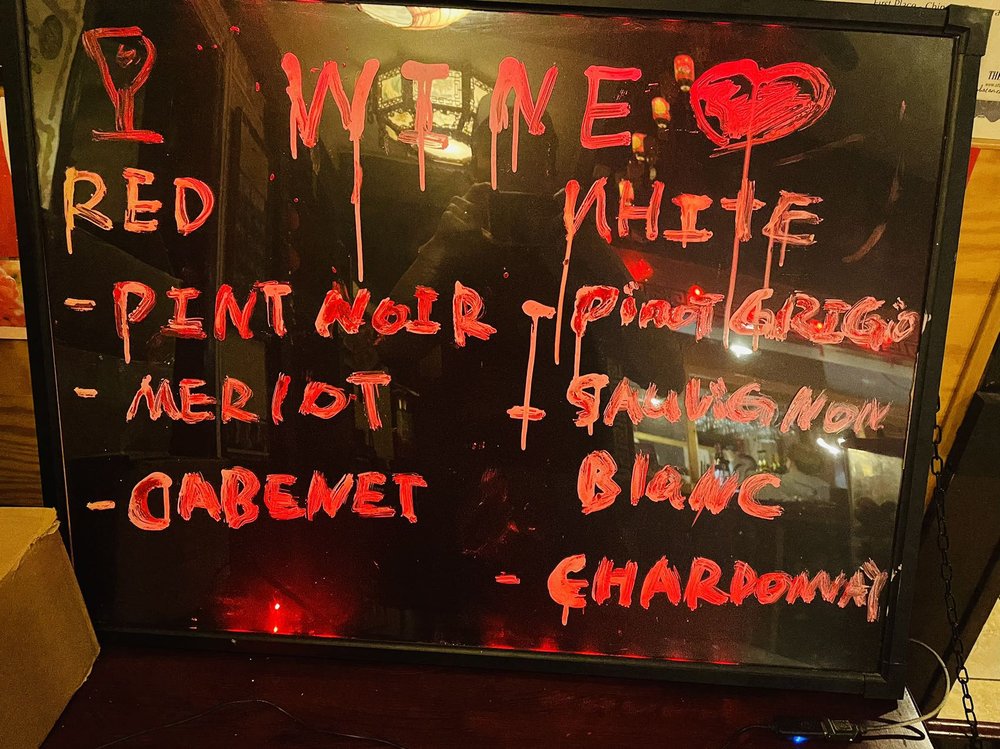 WINE
RED
- PINT NOIR
- MERIOT
- CABENET
WHITE
- PinoT GRIGio
- SAUViGNON
BlANC
- CHARDONNAY
First Place